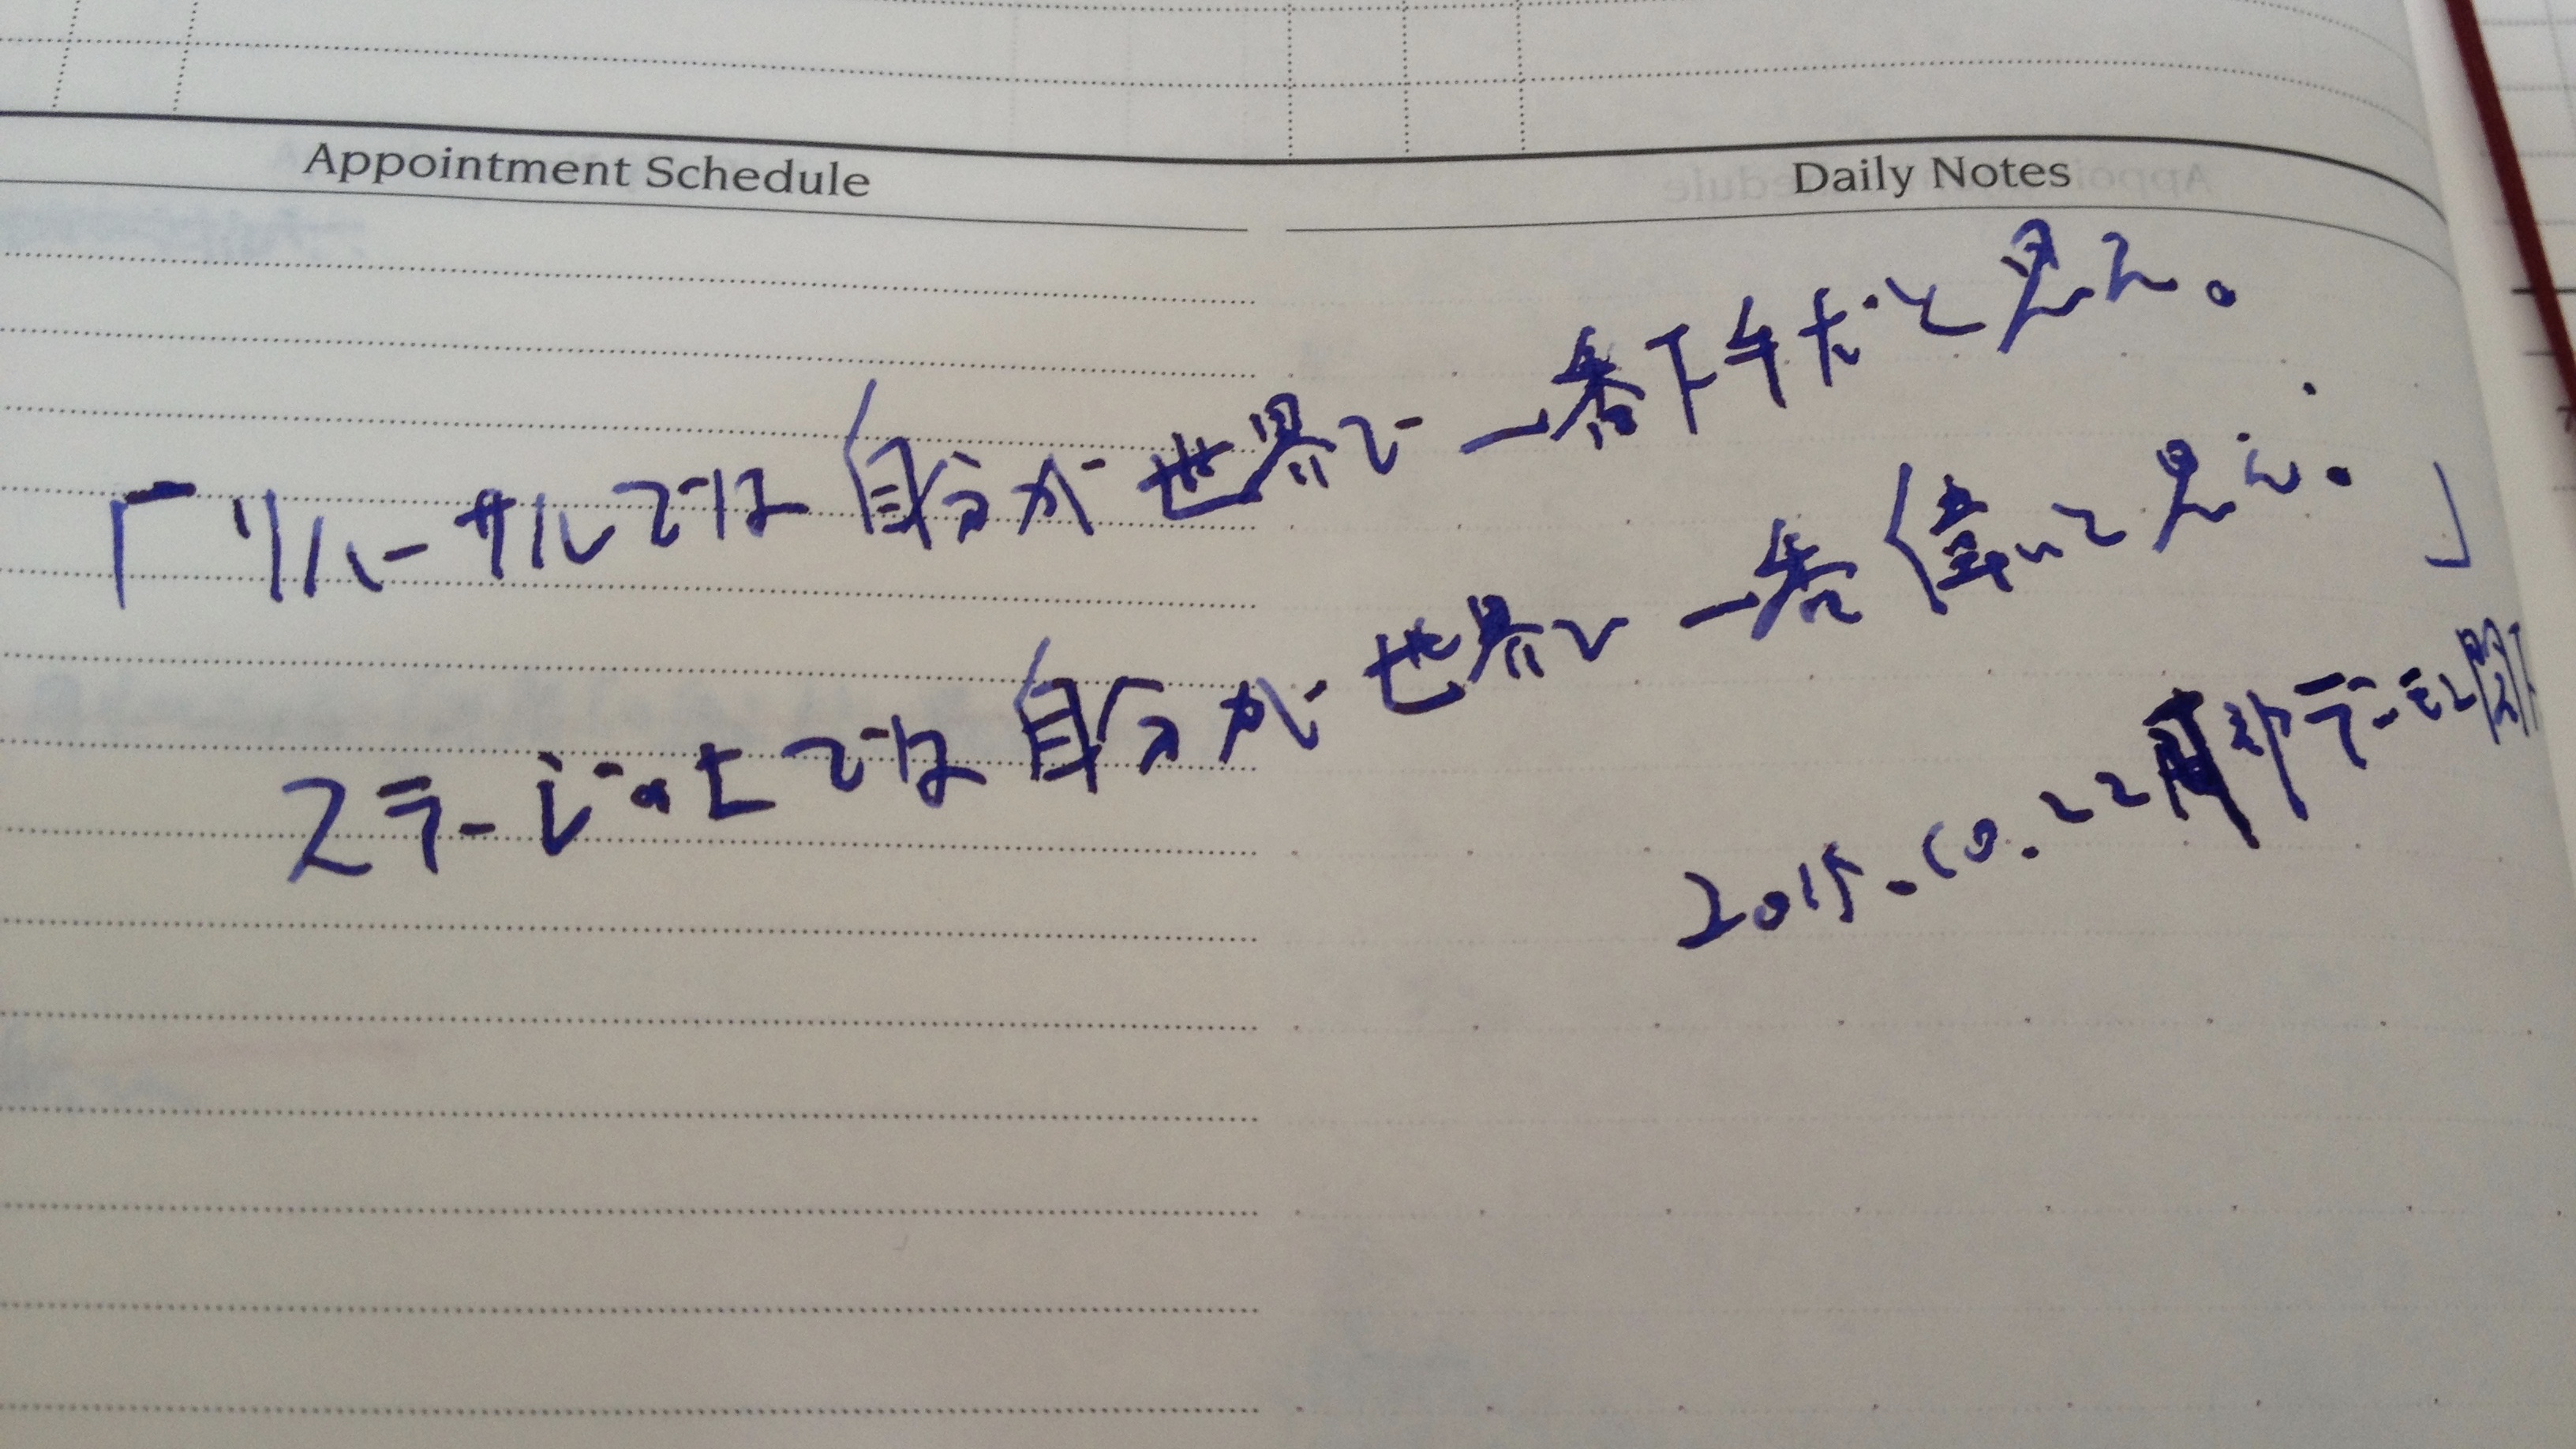 Appointment Schedule
Daily Notes
「リハーサルでは自分が世界で一番下手だと思え。
ステージの上では自分が世界で一番偉いと思え。」
2015.10.22